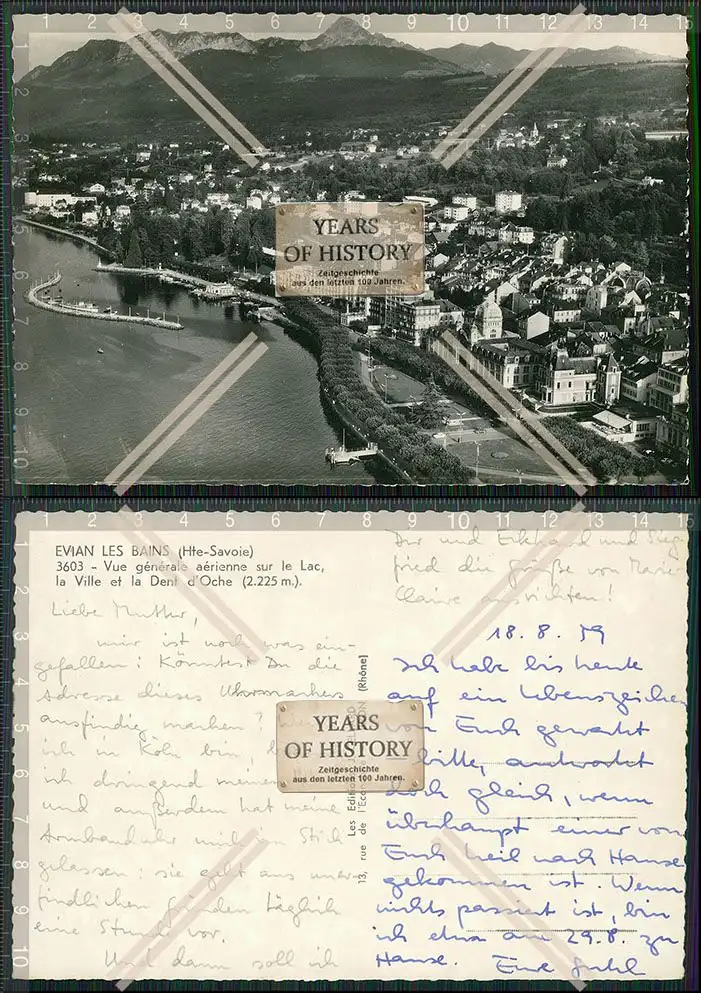 YEARS
OF HISTORY
Zeitgeschichte
aus den letzten 100 Jahren.
EVIAN LES BAINS (Hte-Savoie)
3603 - Vue générale aérienne sur le Lac,
la Ville et la Dent d'Oche (2.225 m.).
Liebe Mutter,
mir ist noch was ein-
gefallen: Könntest Du die
Adresse dieses Uhrmachers
ausfindig machen?
ich in Köln bin,
ich dringend meinen
und außerdem hat meine
Armbanduhr mich im Stich
gelassen: sie geht aus uner-
findlichen Gründen täglich
eine Stunde vor.
Und dann soll ich
YEARS
OF HISTORY
Zeitgeschichte
aus den letzten 100 Jahren.
Les Editions
(Rhône)
13, rue de l'
Dir und Eckhard und Sieg-
fried die Grüße von Marie
Claire ausrichten!
18. 8. 59
Ich habe bis heute
auf ein Lebenszeichen
von Euch gewartet
bitte, antwortet
doch gleich, wenn
überhaupt einer von
Euch heil nach Hause
gekommen ist. Wenn
nichts passiert ist, bin
ich etwa am 29.8. zu
Hause. Eure